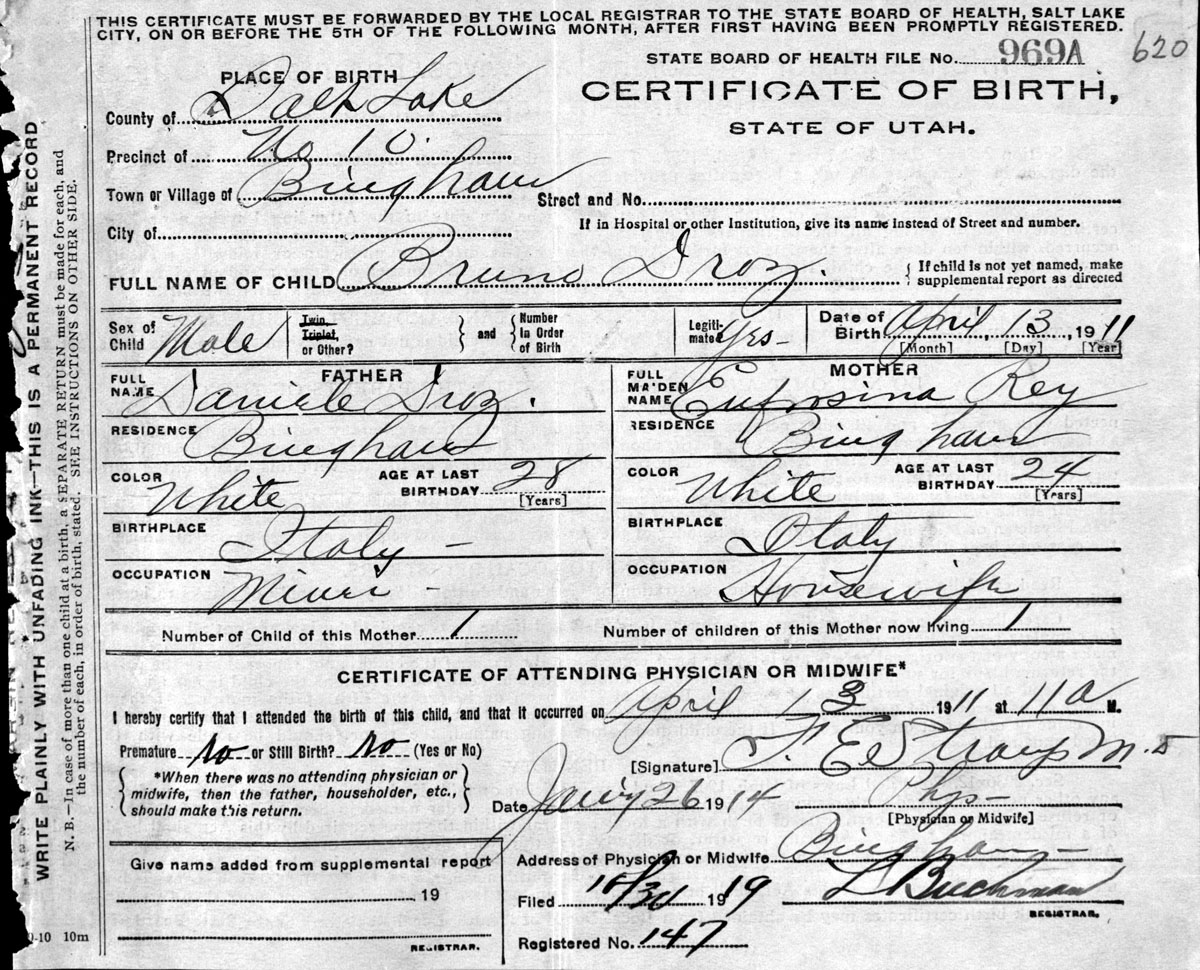 THIS CERTIFICATE MUST BE FORWARDED BY THE LOCAL REGISTRAR TO THE STATE BOARD OF HEALTH, SALT LAKE
CITY, ON OR BEFORE THE 5TH OF THE FOLLOWING MONTH, AFTER FIRST HAVING BEEN PROMPTLY REGISTERED.
STATE BOARD OF HEALTH FILE No. 969A 620
PLACE OF BIRTH
CERTIFICATE OF BIRTH,
STATE OF UTAH.
County of Salt Lake
Precinct of No 10.
Town or Village of Bingham
Street and No.
City of
If in Hospital or other Institution, give its name instead of Street and number.
FULL NAME OF CHILD Bruno Droz.
If child is not yet named, make
supplemental report as directed
Sex of Child Male
Twin, Triplet, or Other?
and
Number in Order of Birth
Legitimate? yes-
Date of Birth April 13, 1911
[Month] [Day] [Year]
FATHER
FULL NAME Daniele Droz.
RESIDENCE Bingham
COLOR White
AGE AT LAST BIRTHDAY 28
[Years]
BIRTHPLACE Italy -
OCCUPATION Miner -
MOTHER
FULL MAIDEN NAME Eufrosina Rey
RESIDENCE Bingham
COLOR White
AGE AT LAST BIRTHDAY 24
[Years]
BIRTHPLACE Italy
OCCUPATION Housewife
Number of Child of this Mother 1
Number of children of this Mother now living 1
CERTIFICATE OF ATTENDING PHYSICIAN OR MIDWIFE*
I hereby certify that I attended the birth of this child, and that it occurred on April 13 1911 at 11 a M.
Premature No or Still Birth? No (Yes or No)
[Signature] F. E. Straup M.D
*When there was no attending physician or
midwife, then the father, householder, etc.,
should make this return.
Date 26 1914
Phys-
[Physician or Midwife]
Give name added from supplemental report
19
REGISTRAR.
Address of Physician or Midwife Bingham-
Filed 10/30 1919
L Buchman
REGISTRAR.
Registered No. 147
10m
WRITE PLAINLY WITH UNFADING INK—THIS IS A PERMANENT RECORD
N. B.—In case of more than one child at a birth, a SEPARATE RETURN must be made for each, and
the number of each, in order of birth, stated. SEE INSTRUCTIONS ON OTHER SIDE.